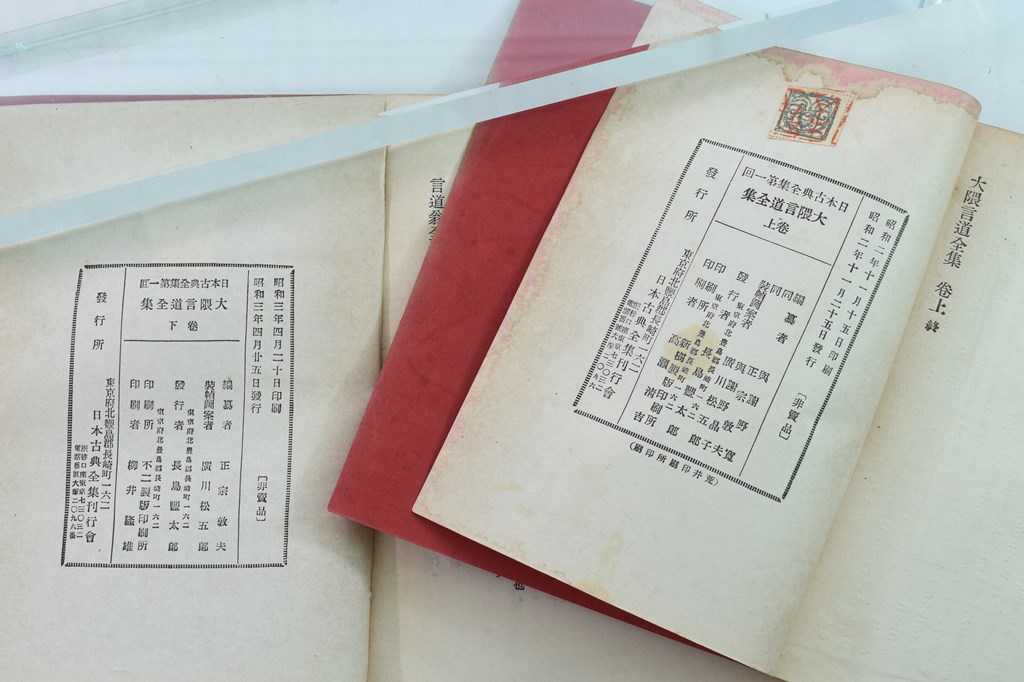 大隈言道全集 卷上 終
昭和二年十一月十五日印刷
昭和二年十一月二十五日發行
〔非賣品〕
日本古典全集第一回
大隈言道全集
卷上
編纂者 與謝野寬
同 正宗敦夫
同 與謝野晶子
裝幀圖案者 廣川松五郎
東京府北豐島郡長崎町一六二
發行者 長島豐太郎
印刷所 新樹製版印刷所
印刷者 高 清吉
發行所
東京府北豐島郡長崎町一六二
日本古典全集刊行會
振替口座東京七三〇三二
電話番號大塚二〇九六
(荒井印刷所印刷)
言道
昭和三年四月二十日印刷
昭和三年四月廿五日發行
〔非賣品〕
日本古典全集第一回
大隈言道全集
卷下
編纂者 正宗敦夫
裝幀圖案者 廣川松五郎
東京府北豐島郡長崎町一六二
發行者 長島豐太郎
印刷所 不二製版印刷所
印刷者 柳井隆雄
發行所
東京府北豐島郡長崎町一六二
日本古典全集刊行會
振替口座東京七三〇三二
電話番號大塚二〇九六番